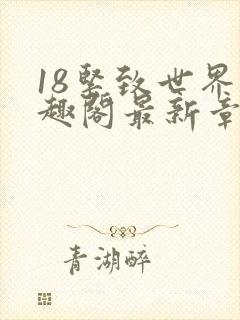 18竪致世界
趣阁最新章
青湖醉